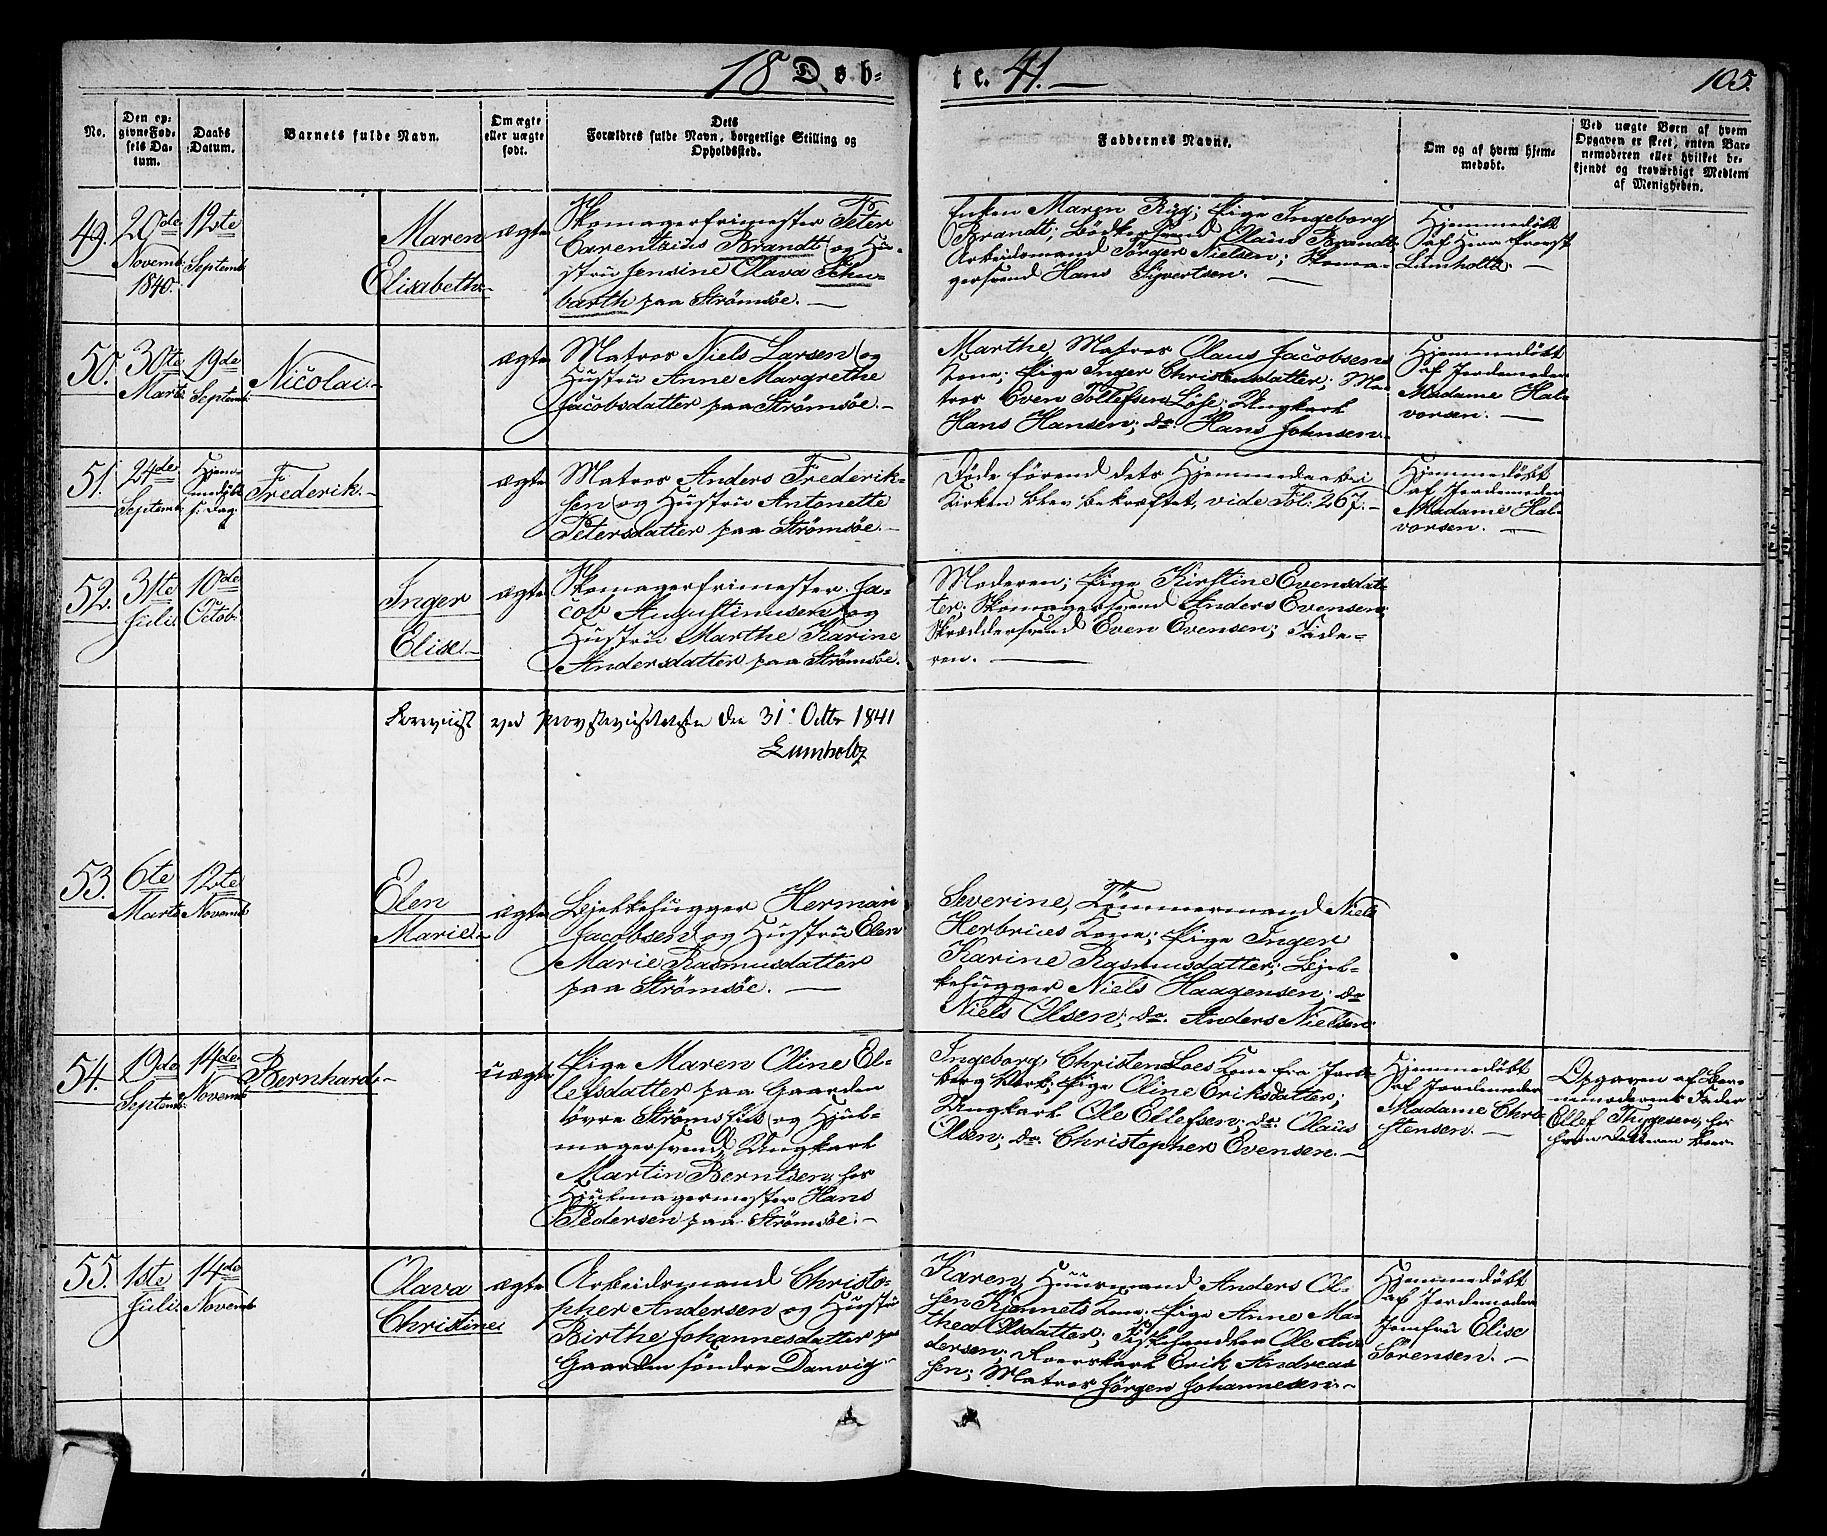 18 Døb-
te. 41.
105.
No.
Den op-
givne Fød-
sels Da-
tum.
Daabs
Datum.
Barnets fulde Navn.
Om ægte
eller uægte
født.
Dets
Forældres fulde Navn, borgerlige Stilling og
Opholdssted.
Faddernes Navne.
Om og af hvem hjem-
medøbt.
Ved uægte Børn af hvem
Opgaven er skeet, enten Bar-
nemoderen eller hvilket be-
kjendt og troværdigt Medlem
af Menigheden.
49.
20de
Novemb:
1840.
12te
Septemb:
Maren
Elisabeth.
ægte
Skomagerfrimester Peter
Carentzius Brandt og Hu-
stru Jensine Olava Schu-
barth paa Strømsøe.
Enken Maren Ryg; Pige Ingeborg
Brandt; Bødkersvend Olaus Brandt
Arbeidsmand Jørger Nielsen; Skoma-
gersvend Hans Syvertsen.
Hjemmedøbt
af Herr Provst
Lumholtz.
50.
30te
Marts
19de
Septemb:
Nicolai.
ægte
Matros Niels Larsen og
Hustru Anne Margrethe
Jacobsdatter paa Strømsøe.
Marthe, Matros Olaus Jacobsens
Kone; Pige Inger Christensdatter; Ma-
tros Even Tollefsen Løse; Ungkarl
Hans Hansen; do. Hans Johnsen.
Hjemmedøbt
af Jordemoder
Madame Hal-
vorsen.
51.
24de
Septemb:
Hjem-
medøbt
s. Dag
Frederik.
ægte
Matros Anders Frederik-
sen og Hustru Antonette
Petersdatter paa Strømsøe.
Døde førend dets Hjemmedaab i
Kirken blev bekræftet, vide Fol: 267.
Hjemmedøbt
af Jordemoder
Madame Hal-
vorsen.
52.
31te
Julii
10de
Octob:
Inger
Elise.
ægte
Skomagerfrimester Ja-
cob Augustinusen og
Hustru Marthe Karine
Andersdatter paa Strømsøe.
Moderen; Pige Kirstine Evensdat-
ter; Skomagersvend Anders Evensen;
Skræddersvend Even Evensen; Fade-
ren.
Foreviist ved Provstevisitatsen den 31. Octbr 1841
Lumholtz
53.
6te
Marts
12te
Novemb:
Elen
Marie.
ægte
Bjelkehugger Herman
Jacobsen og Hustru Elen
Marie Rasmusdatter
paa Strømsøe.
Severine, Tømmermand Niels
Herbrues Kone; Pige Inger
Karine Rasmusdatter; Bjel-
kehugger Niels Haagensen; do
Niels Olsen; do. Anders Nielsen.
54.
19de
Septemb:
14de
Novemb:
Bernhard.
uægte
Pige Maren Oline El-
lefsdatter paa Gaarden
øvre og Hjul-
magersvend, Ungkarl
Martin Berntsen, hos
Hjulmagermester Hans
Pedersen paa Strømsøe.
Ingeborg, Christen Loes Kone fra
Pige Oline Eriksdatter;
Ungkarl Ole Ellefsen; do. Olaus
Olsen; do. Christopher Evensen.
Hjemmedøbt
af Jordemoder
Madame Chri-
stensen.
Opgaven af Bar-
nemoderens Fader
Ellef Thygesen, hos
hvem Datteren boer.
55.
1ste
Julii
14de
Novemb:
Olava
Christine
ægte
Arbeidsmand Christo-
pher Andersen og Hustru
Birthe Johannesdatter paa
Gaarden søndre Danvig.
Karen, Huusmand Anders Ol-
sen Kjønnets Kone; Pige Anne Ma-
thea Olsdatter; Fiskehandler Ole An-
dersen; Roerskarl Erik Andreas-
sen; Matros Jørgen Johannesen.
Hjemmedøbt
af Jordemoder
Jomfru Elise
Sørensen.